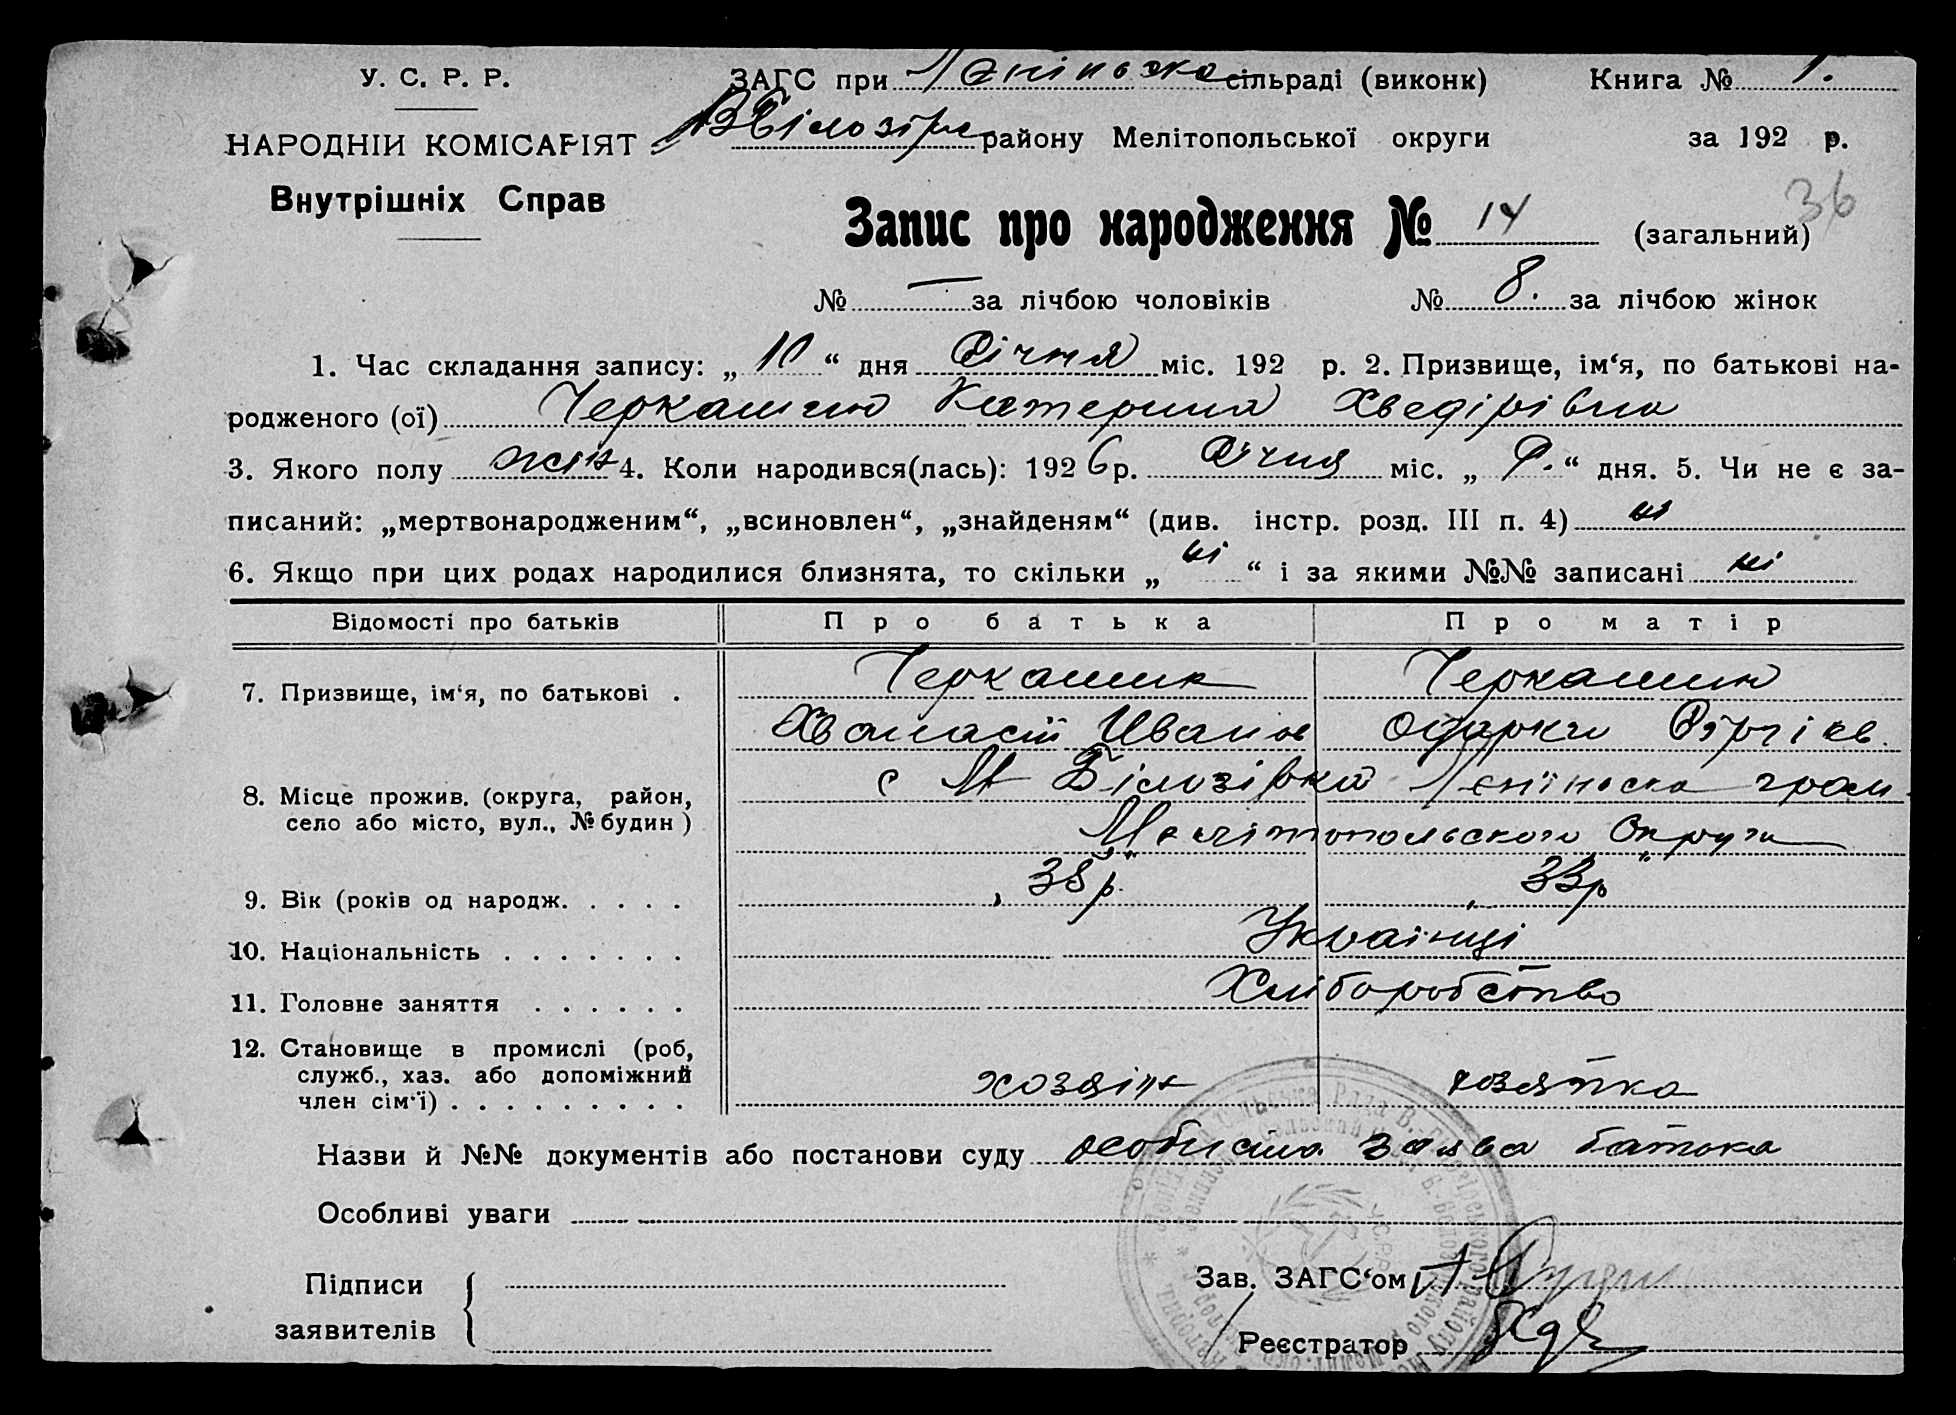 У. С. Р. Р.
ЗАГС при Леніньска сільраді (виконк) Книга № 1.
НАРОДНІЙ КОМІСАРІЯТ
В Білозірс району Мелітопольської округи за 192 р.
Внутрішніх Справ
36
Запис про народження № 14 (загальний)
№ — за лічбою чоловіків № 8. за лічбою жінок
1. Час складання запису: „ 10 “ дня Січня міс. 192 р. 2. Призвище, ім‘я, по батькові на-
родженого (ої) Черкашин Катерина Хведірівна
3. Якого полу жін 4. Коли народився(лась): 1926 р. Січня міс. „ 9. “ дня. 5. Чи не є за-
писаний: „мертвонародженим“, „всиновлен“, „знайденям“ (див. інстр. розд. III п. 4) ні
6. Якщо при цих родах народилися близнята, то скільки „ ні “ і за якими №№ записані ні
Відомості про батьків Про батька Про матір
7. Призвище, ім‘я, по батькові . Черкашин Черкашин
Іванов Одарка Сергієв.
8. Місце прожив. (округа, район, с М Білозірка Леніньска гром.
село або місто, вул., № будин) Мелітопольского Округи
9. Вік (років од народж. . . . . 38 р. 33 р
10. Національність . . . . . . . Українці
11. Головне заняття . . . . . . Хліборобство
12. Становище в промислі (роб,
служб., хаз. або допоміжний хозяін хозяйка
член сім‘ї) . . . . . . . . .
Назви й №№ документів або постанови суду особиста заява батька
Особливі уваги
Підписи Зав. ЗАГС‘ом
заявителів Реєстратор